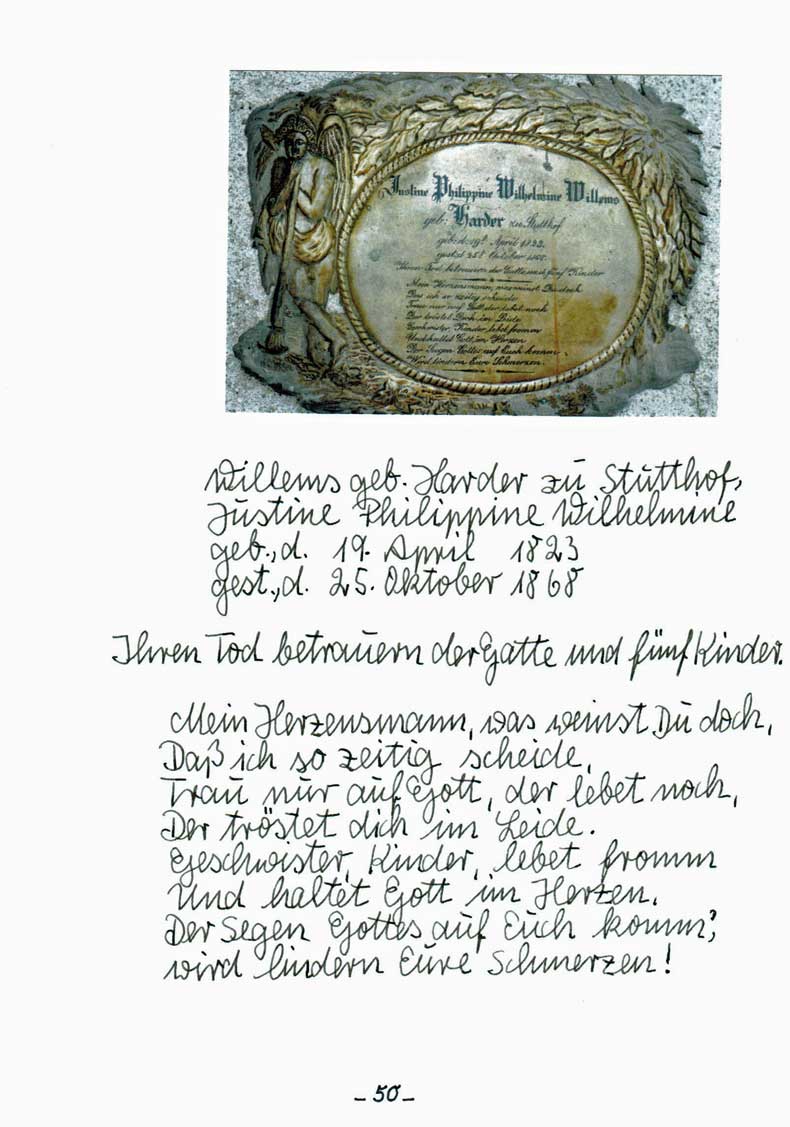 Justine Philippine Wilhelmine Willems
geb: Harder zu Stutthof
geb: d: 19t April 1823.
gest: d: 25t Oktober
Ihren Tod betrauern der Gatte und fünf Kinder
Mein Herzensmann, was weinst Du doch
Das ich so zeitig scheide
Trau nur auf Gott der lebet noch
Der tröstet Dich im Leide
Geschwister, Kinder lebet fromm
Und haltet Gott im Herzen
Der Segen Gottes auf Euch komm
Wird lindern Eure Schmerzen.
Willems geb. Harder zu Stutthof,
Justine Philippine Wilhelmine
geb., d. 19. April 1823
gest., d. 25. Oktober 1868
Ihren Tod betrauern der Gatte und fünf Kinder.
Mein Herzensmann, was weinst Du doch,
Daß ich so zeitig scheide,
Trau nur auf Gott, der lebet noch,
Der tröstet dich im Leide.
Geschwister, Kinder, lebet fromm
Und haltet Gott im Herzen,
Der Segen Gottes auf Euch komm',
wird lindern Eure Schmerzen!
- 50 -